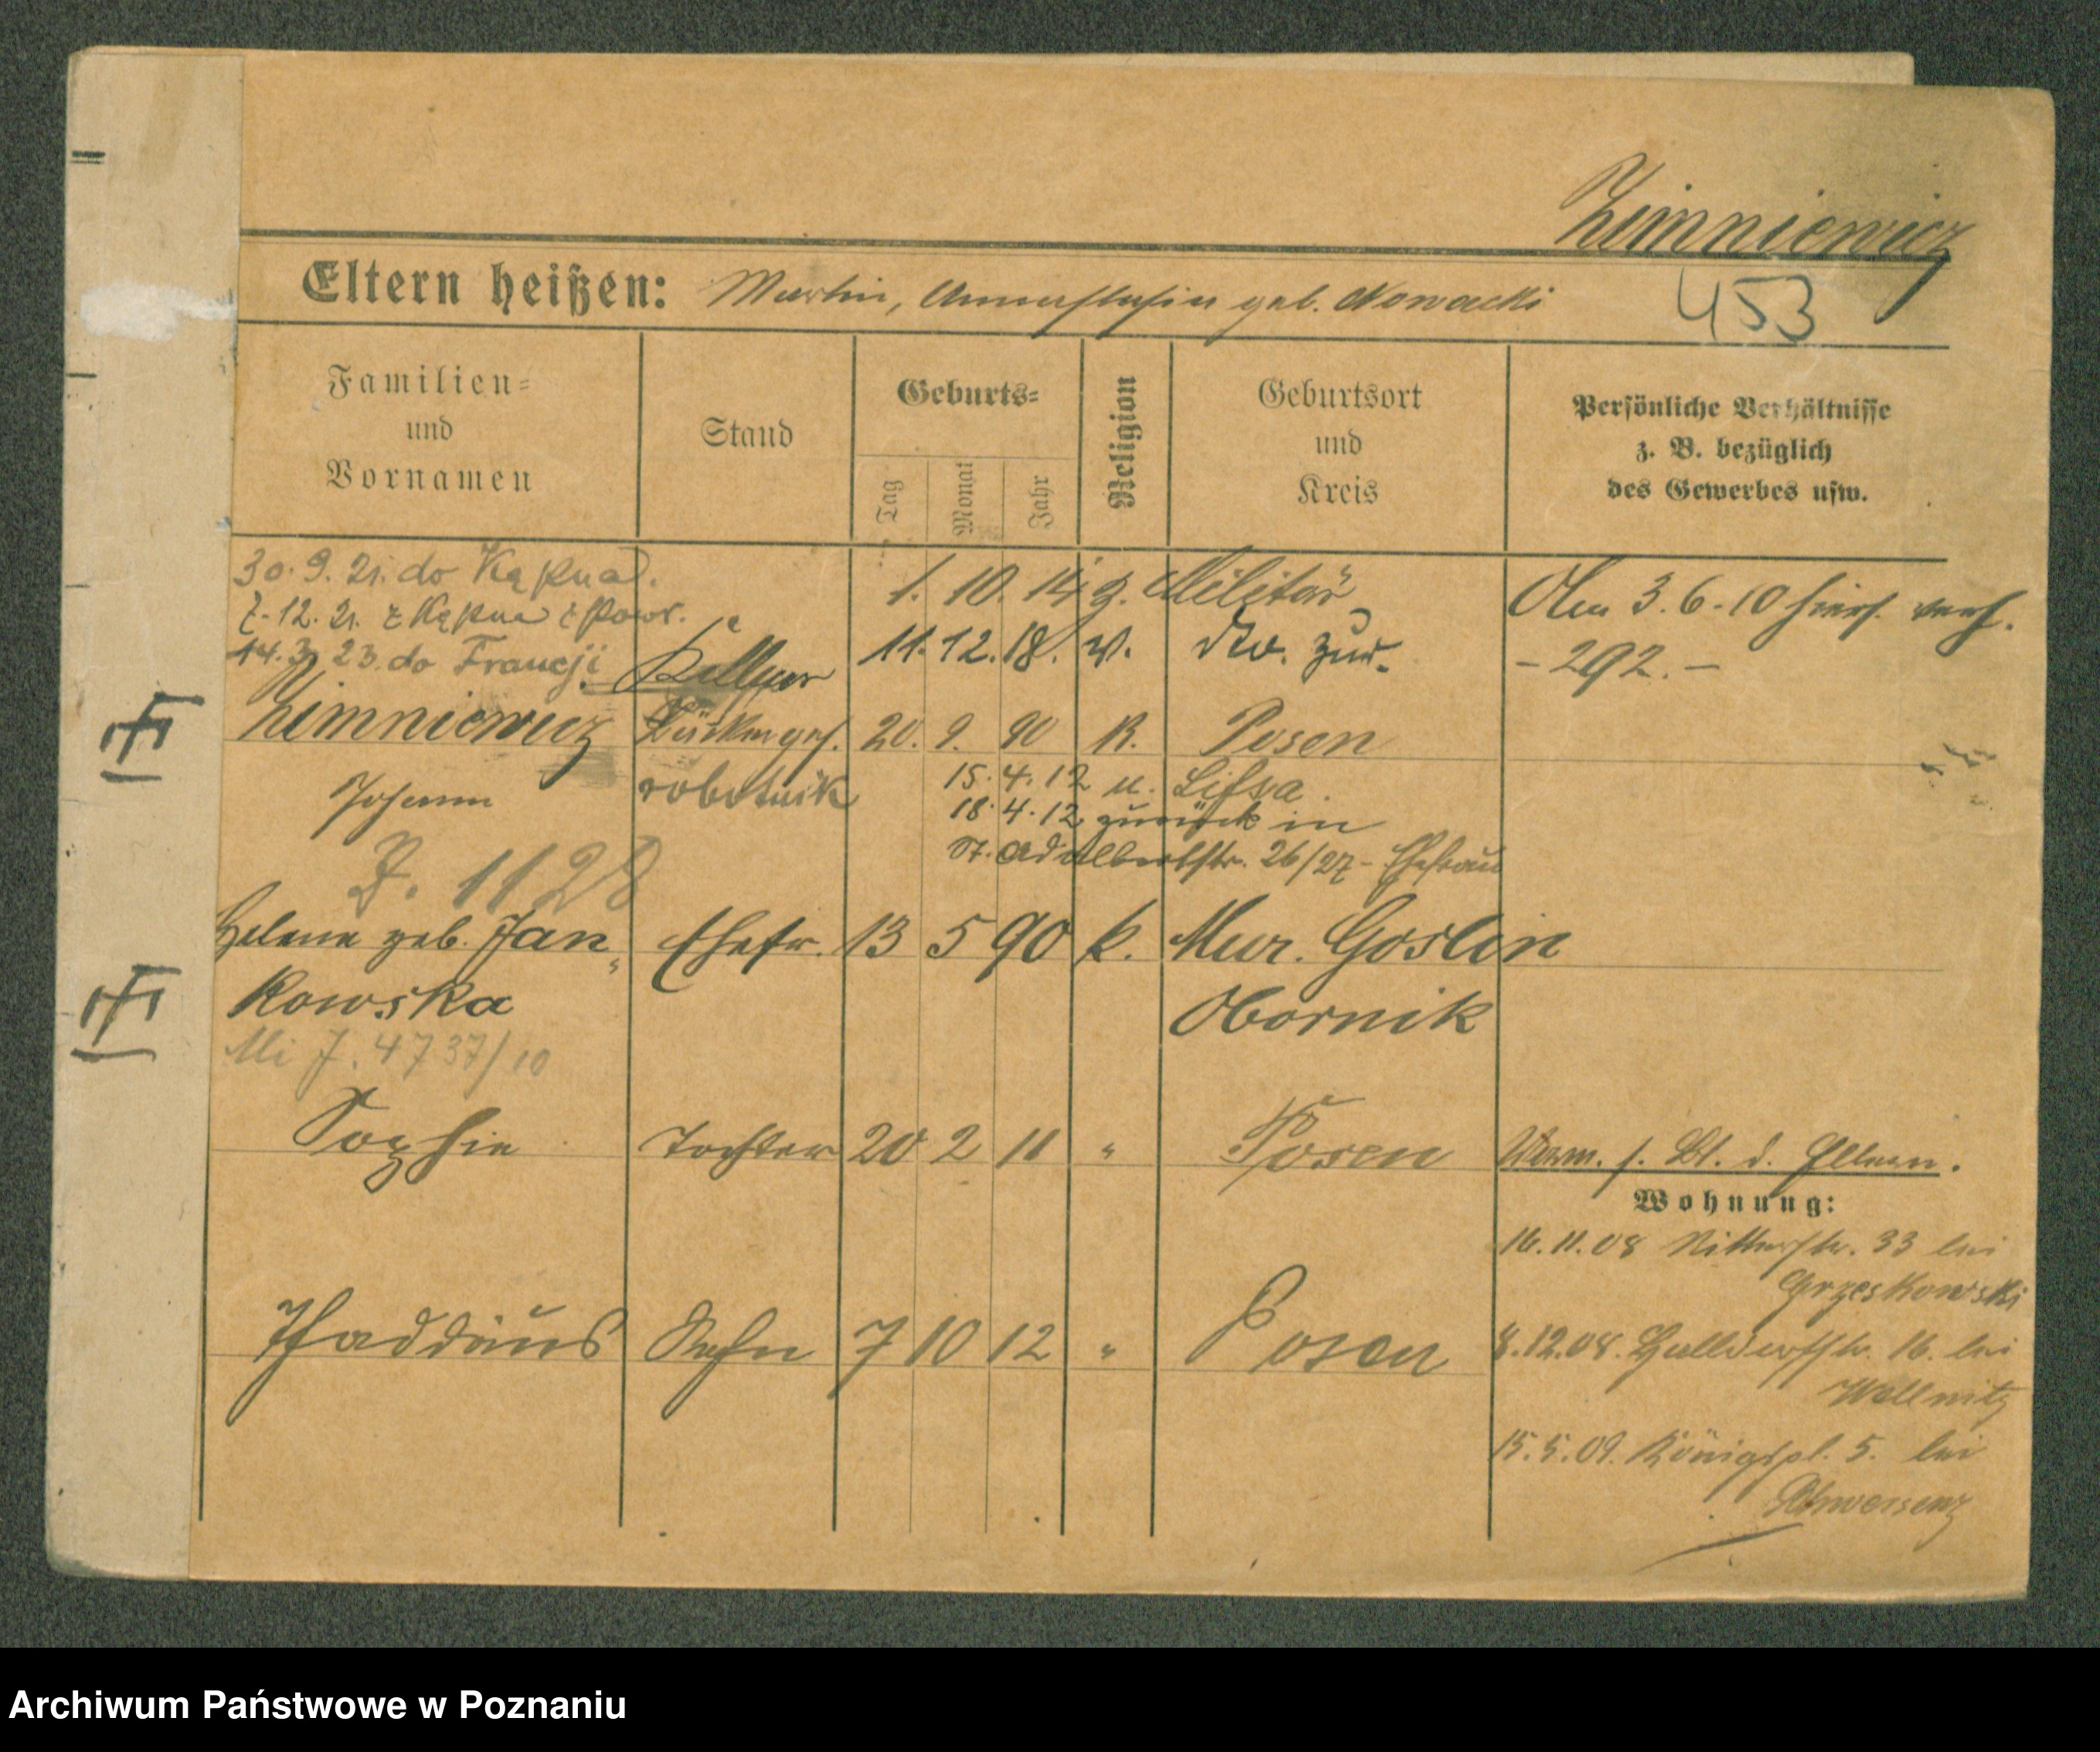 Zimniewicz
Eltern heißen: Martin, Annastasia geb. Nowacki
453
Familien-
und
Vornamen
Stand
Geburts-
Tag
Monat
Jahr
Religion
Geburtsort
und
Kreis
Persönliche Verhältnisse
z. B. bezüglich
des Gewerbes usw.
30.9.21. do
7.-12.21. z
14.3.23. do Francji
1. 10. 14 z. Militär
11. 12. 18. v. dto. zur.
Am 3.6.10 hier verh.
- 292. -
Kellner
Zimniewicz
20. 9. 90 K. Posen
Johann
robotnik
15.4.12 n. Lissa.
18.4.12 zurück in
St. Adalbertstr. 26/27 - Ehefrau
J. 1128
Helene geb. Jan-
kowska
Ehefr. 13 5 90 k. Mur. Goslin
Obornik
Mi J. 4737/10
Sophie Tochter 20 2 11 " Posen
Verm. s. Bl. d. Eltern.
Wohnung:
16.11.08 Ritterstr. 33 bei
Grzeskowski
Thaddäus Sohn 7 10 12 " Posen
8.12.08. Halldorfstr. 16. bei
Wollnitz
15.5.09. Königspl. 5. bei
Schwersenz
Archiwum Państwowe w Poznaniu